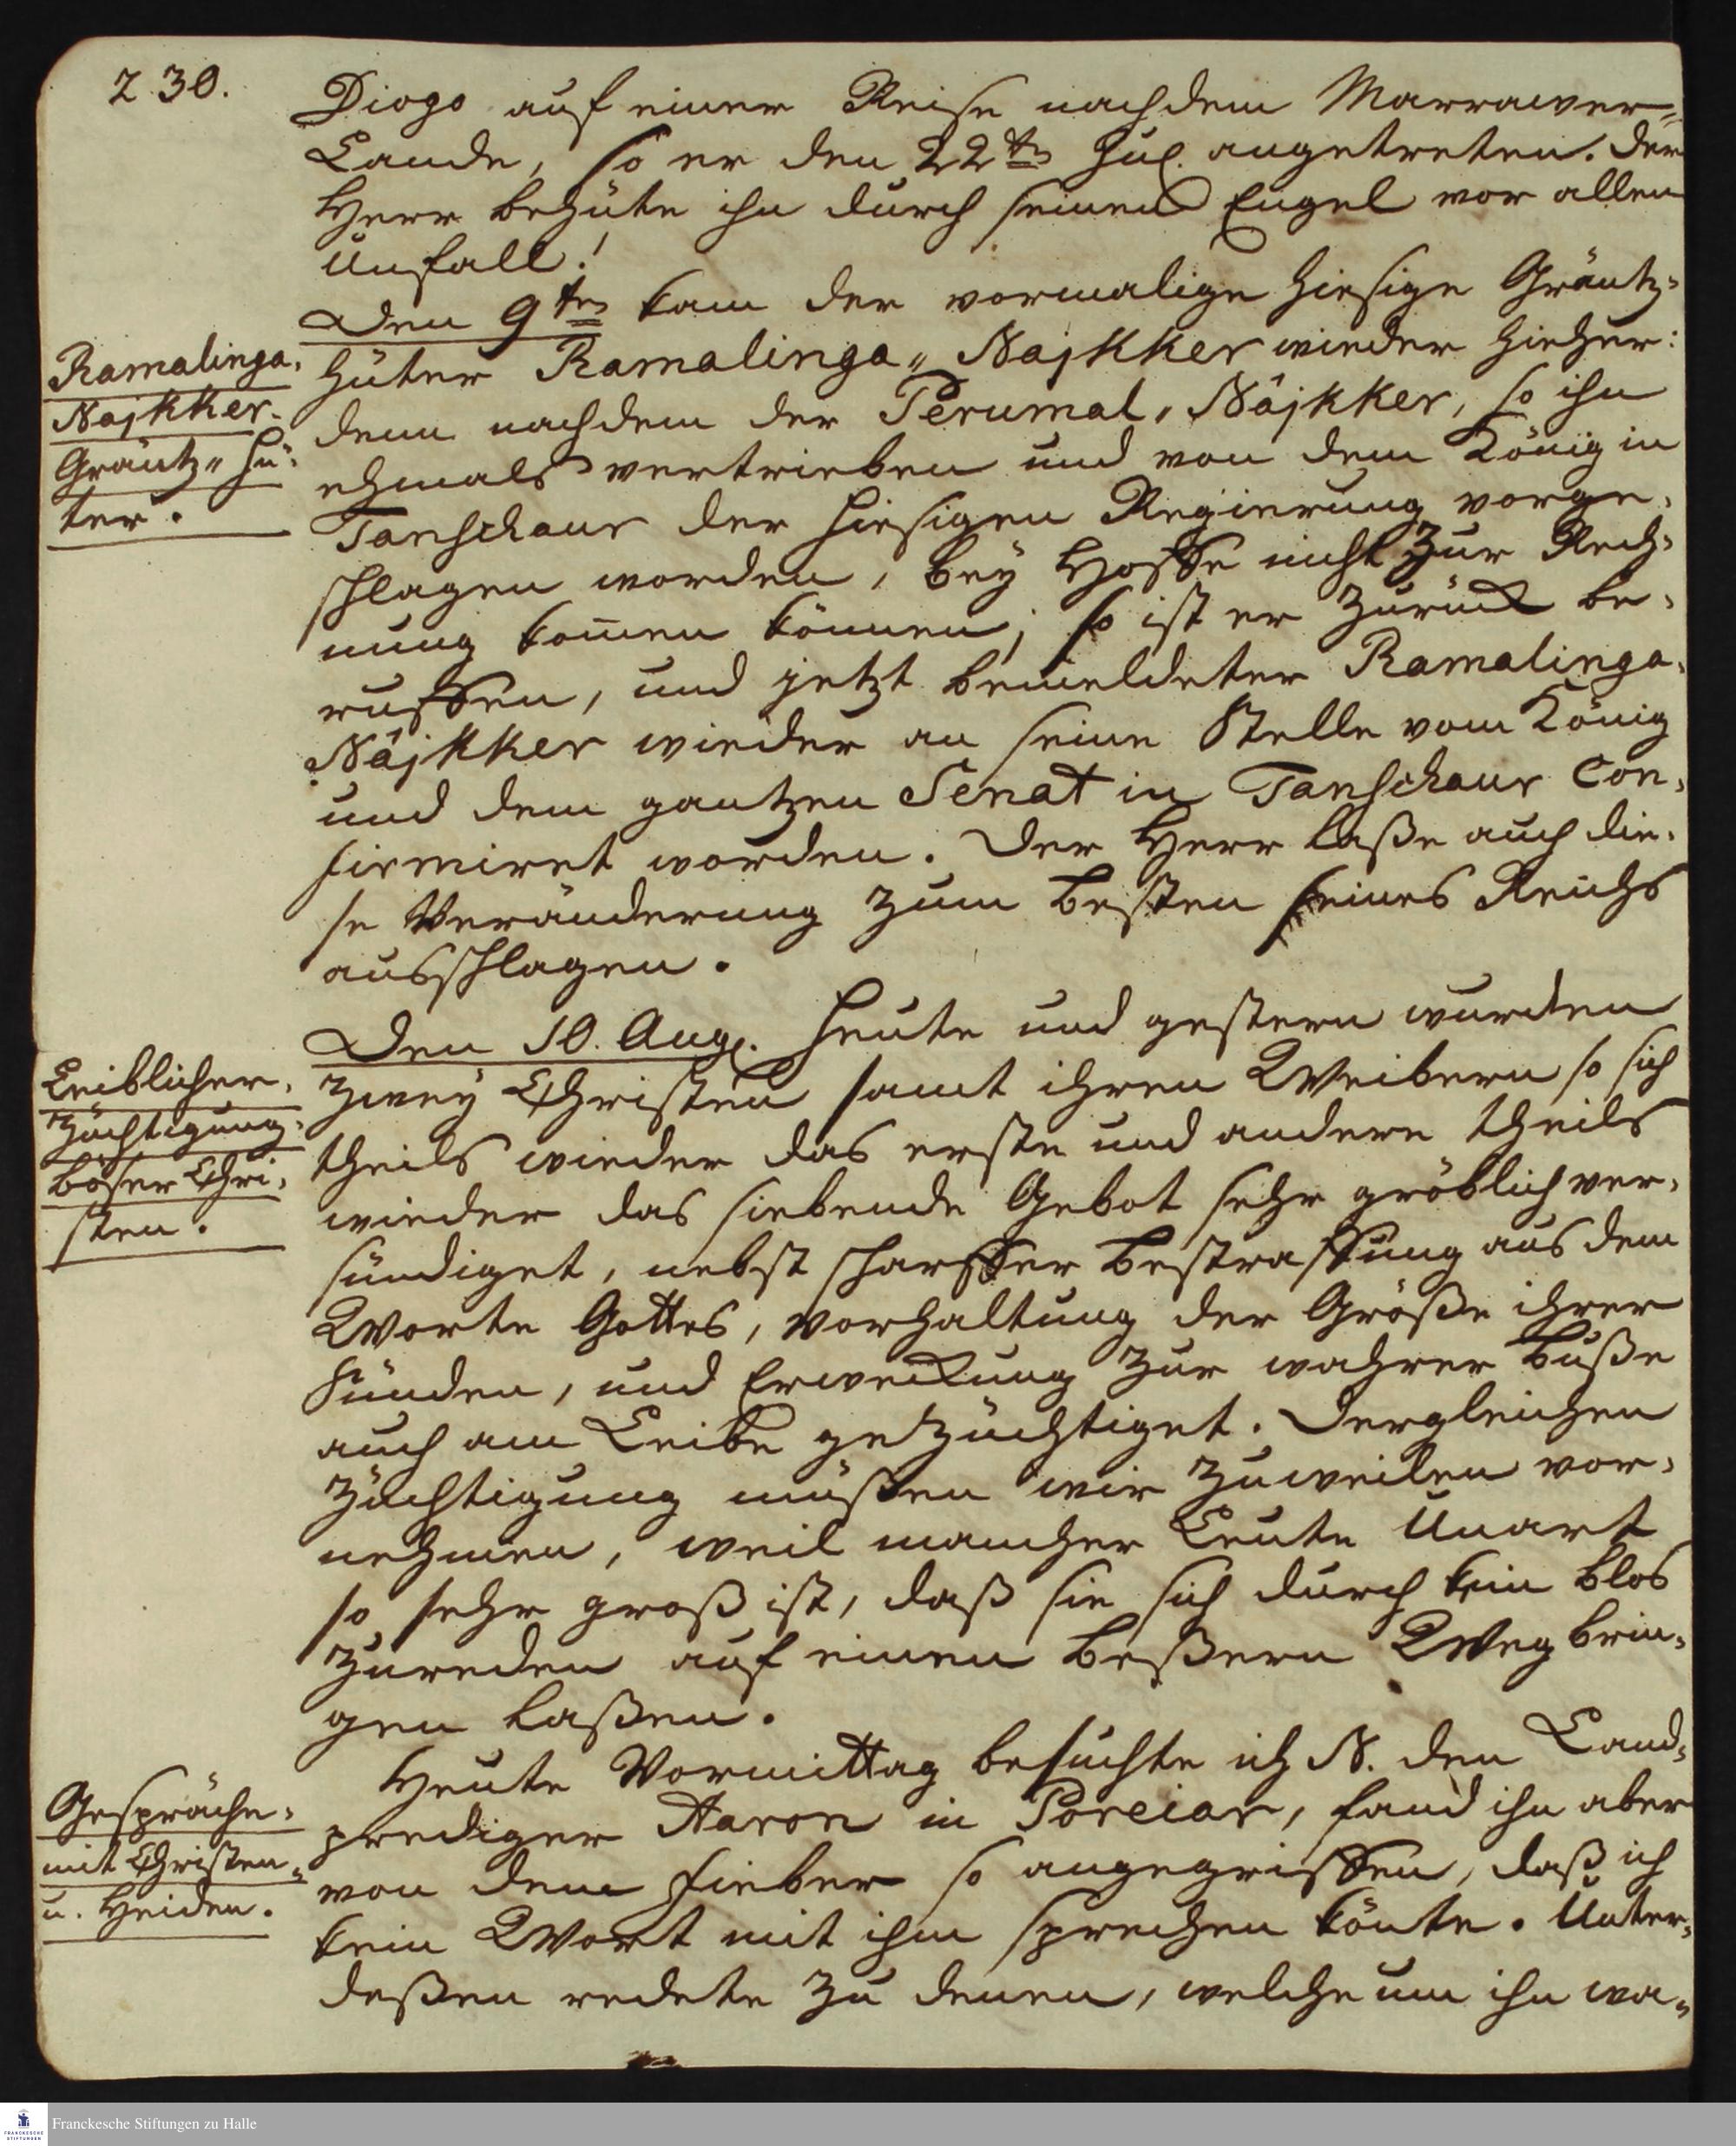 230.
Diogo auf einer Reise nach dem Marrawer-
Lande, so er den 22ten Jul. angetreten. Der
Herr behüte ihn durch seinen Engel vor allen
Unfall!
Den 9ten kam der vormalige hiesige Gräntz-
Ramalinga-
Najkker
Gräntz-Hü-
ter.
hüter Ramalinga-Najkker wieder hieher:
denn nachdem der Perumal-Näjkker, so ihn
ehmals vertrieben und von dem König in
Tanschaur der hiesigen Regierung vorge-
schlagen worden, bey Hoffe nicht zur Rech-
nung kom̄en können; so ist er zurück be-
ruffen, und jetzt bemeldeter Ramalinga-
Näjkker wieder an seine Stelle vom König
und dem gantzen Senat in Tanschaur con-
firmiret worden. Der Herr laße auch die-
se Veränderung zum Besten seines Reichs
ausschlagen.
Den 10. Aug. Heute und gestern wurden
Leiblicher-
Züchtigung-
böser Chri-
sten.
zwey Christen samt ihren Weibern so sich
theils wieder das erste und andere theils
wieder das siebende Gebot sehr gröblich ver-
sündiget, nebst scharffer Bestraffung aus dem
Worte Gottes, Vorhaltung der Größe ihrer
Sünden, und Erweckung zur wahrer Buße
auch am Leibe gezüchtiget. Dergleichen
Züchtigung müßen wir zuweilen vor-
nehmen, weil mancher Leute Unart
so sehr groß ist, daß sie sich durch kein blos
zureden auf einen beßern Weg brin-
gen laßen.
Heute Vormittag besuchte ich N. den Land-
Gespräche-
mit Christen-
u. Heiden.
prediger Aaron in Poreiar, fand ihn aber
von dem Fieber so angegriffen, daß ich
kein Wort mit ihm sprechen könte. Unter-
deßen redete zu denen, welche um ihn wa-
Franckesche Stiftungen zu Halle
FRANCKESCHE
STIFTUNGEN